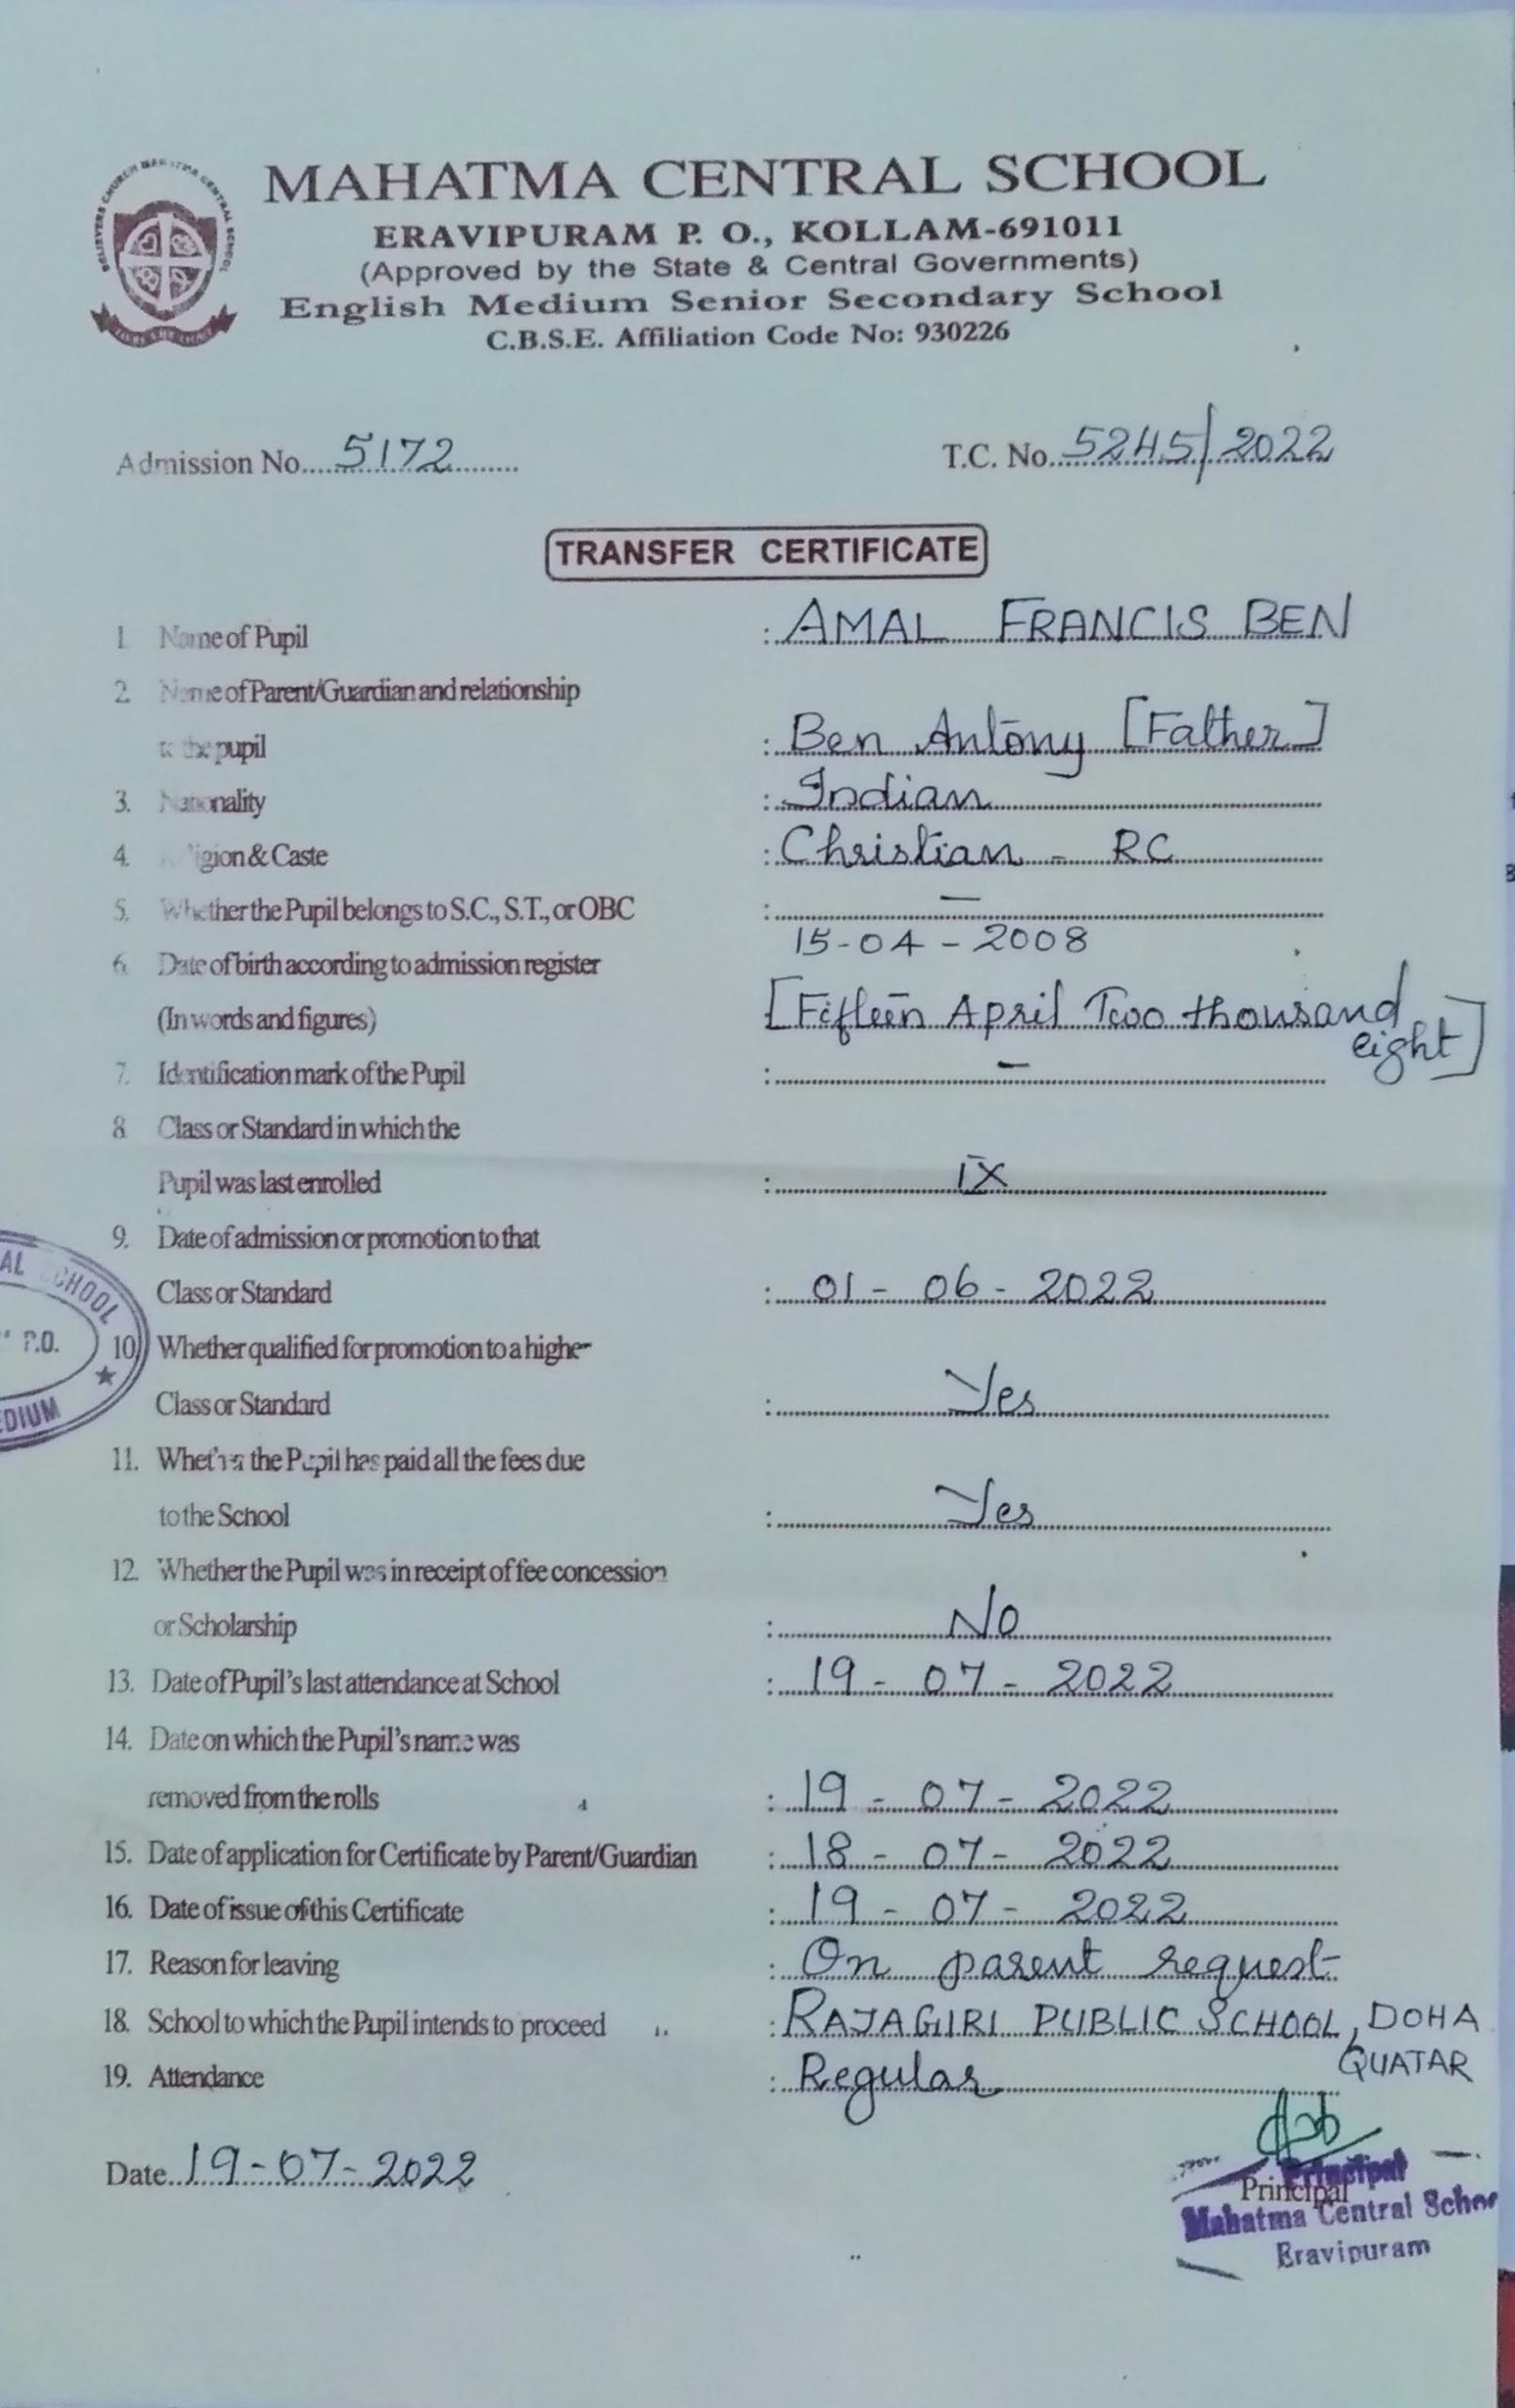 BELIEVERS CHURCH MAHATMA CENTRAL SCHOOL
MAHATMA CENTRAL SCHOOL
ERAVIPURAM P. O., KOLLAM-691011
(Approved by the State & Central Governments)
English Medium Senior Secondary School
C.B.S.E. Affiliation Code No: 930226
Admission No. 5172
T.C. No. 5245/2022
TRANSFER CERTIFICATE
1. Name of Pupil : AMAL FRANCIS BEN
2. Name of Parent/Guardian and relationship
to the pupil : Ben Antony [Father]
3. Nationality : Indian
4. Religion & Caste : Christian - RC
5. Whether the Pupil belongs to S.C., S.T., or OBC : —
6. Date of birth according to admission register 15-04-2008
(In words and figures) [Fifteen April Two thousand
eight]
7. Identification mark of the Pupil : —
8. Class or Standard in which the
Pupil was last enrolled : IX
9. Date of admission or promotion to that
Class or Standard : 01-06-2022
10. Whether qualified for promotion to a higher
Class or Standard : Yes
11. Whether the Pupil has paid all the fees due
to the School : Yes
12. Whether the Pupil was in receipt of fee concession
or Scholarship : No
13. Date of Pupil's last attendance at School : 19-07-2022
14. Date on which the Pupil's name was
removed from the rolls : 19-07-2022
15. Date of application for Certificate by Parent/Guardian : 18-07-2022
16. Date of issue of this Certificate : 19-07-2022
17. Reason for leaving : On parent request
18. School to which the Pupil intends to proceed : RAJAGIRI PUBLIC SCHOOL, DOHA
QUATAR
19. Attendance : Regular
Date 19-07-2022
Principal
Principal
Mahatma Central Schoo
Eravipuram
AL SCHOOL
P.O.
EDIUM